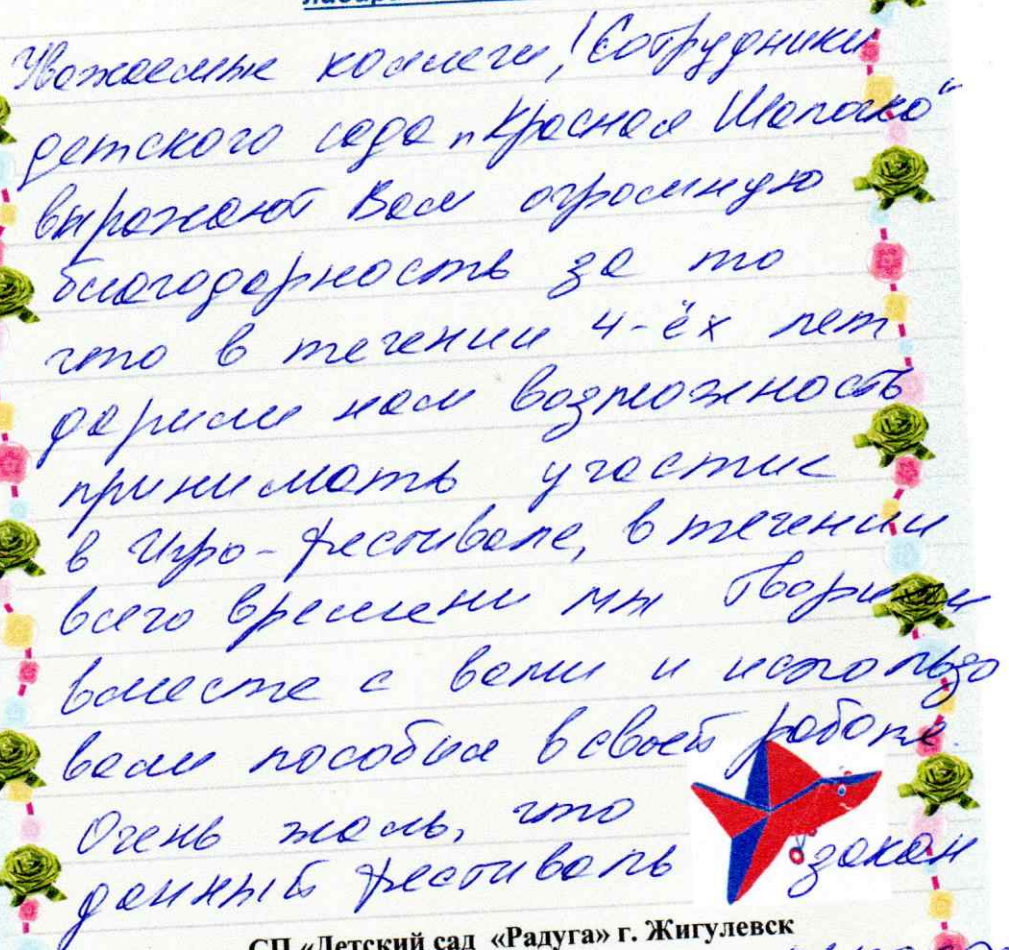 Уважаемые коллеги! Сотрудники
детского сада „Красная Шапочка“
выражают Вам огромную
благодарность за то
что в течении 4-ёх лет
дарили нам возможность
принимать участие
в Игро-фестивале, в течении
всего времени мы творили
вместе с вами и использо
вали пособия в своей работе.
Очень жаль, что
данный фестиваль закон
СП «Детский сад «Радуга» г. Жигулевск